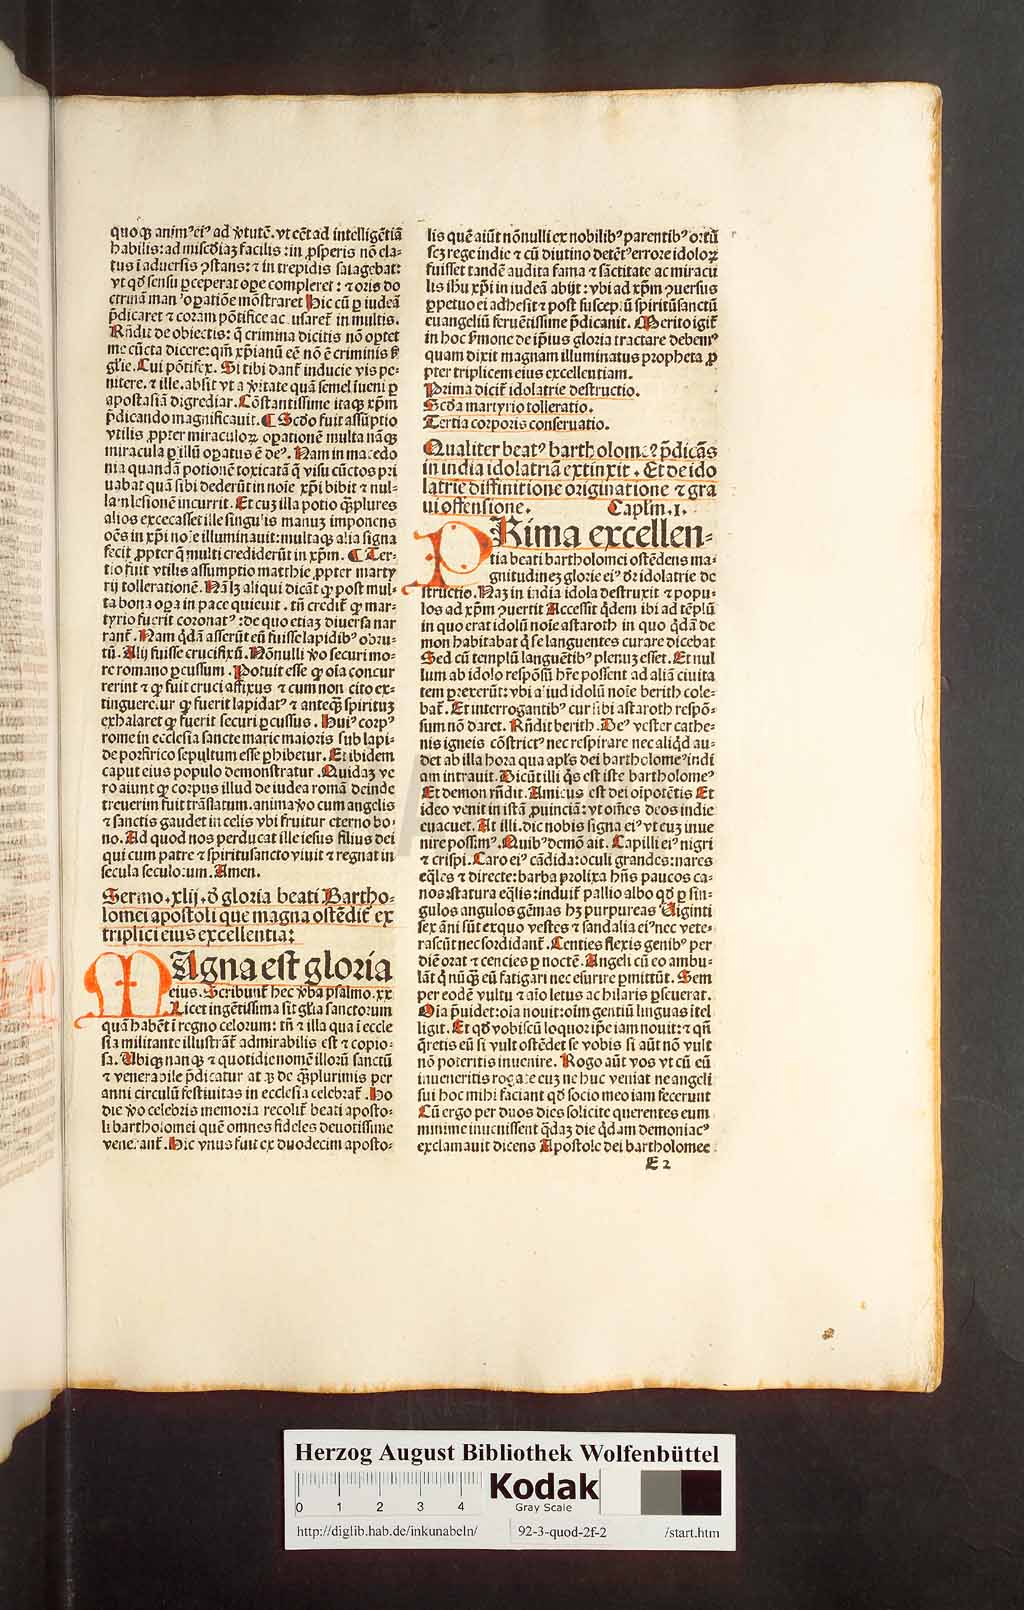 quoqꝫ animꝰ eiꝰ ad v̓tutē. vt eēt ad intelligētiā
habilis: ad miscđiaꝫ facilis: in ꝓsperis nō ela-
tus ī aduersis ꝯstans: ⁊ in trepidis satagebat:
vt qđ sensu ꝑceperat oꝑe compleret: ⁊ oris do
ctrinā manꝰ oꝑatiōe mōstraret Hic cū ꝑ iudeā
p̄dicaret ⁊ coram pōtifice accusaret̄ in multis.
Rn̄dit de obiectis: q̄ crimina dicitis nō oꝑtet
me cūcta dicere: qm̄ xp̄ianū eē nō ē criminis ß
gl̄ie. Cui pōtifex. Si tibi dant̄ inducie vis pe-
nitere. ⁊ ille. absit vt a v̓itate quā semel īueni ꝑ
apostasiā digrediar. Cōstantissime itaqꝫ xp̄m
p̄dicando magnificauit. ¶ Scđo fuit assūptio
vtilis ꝓpter miraculoꝝ oꝑationē multa nāqꝫ
miracula ꝑ illū oꝑatus ē deꝰ. Nam in macedo
nia quandā potionē toxicatā q̄ visu cūctos pri
uabat quā sibi dederūt in noīe xp̄i bibit ⁊ nul-
lā lesionē incurrit. Et cuꝫ illa potio qꝫplures
alios excecasset ille singulis manuꝫ imponens
oēs in xp̄i noīe illuminauit: multaqꝫ alia signa
fecit ꝓpter q̄ multi crediderūt in xp̄m. ¶ Ter-
tio fuit vtilis assumptio matthie ꝓpter marty
rij tollerationē. Nāꝫ aliqui dicāt ꝙ post mul-
ta bona oꝑa in pace quieuit. tn̄ credit̄ ꝙ mar-
tyrio fuerit coronatꝰ: de quo etiaꝫ diuersa nar
rant̄. Nam qđā asserūt eū fuisse lapidibꝰ obru-
tū. Alij fuisse crucifixū. Nōnulli v̓o securi mo-
re romano ꝑcussum. Potuit esse ꝙ oīa concur
rerint ⁊ ꝙ fuit cruci affixus ⁊ cum non cito ex-
tingueretur ꝙ fuerit lapidatꝰ ⁊ anteqꝫ spirituꝫ
exhalaret ꝙ fuerit securi ꝑcussus. Huiꝰ corpꝰ
rome in ecclesia sancte marie maioris sub lapi-
de porfirico sepultum esse ꝑhibetur. Et ibidem
caput eius populo demonstratur. Quidaꝫ ve
ro aiunt ꝙ corpus illud de iudea romā deinde
treuerim fuit trāslatum. anima v̓o cum angelis
⁊ sanctis gaudet in celis vbi fruitur eterno bo-
no. Ad quod nos perducat ille iesus filius dei
qui cum patre ⁊ spiritusancto viuit ⁊ regnat in
secula seculorum. Amen.
Sermo .xlij. đ gloria beati Bartho-
lomei apostoli que magna ostēdit̄ ex
triplici eius excellentia:
MAgna est gloria
eius. Scribunt̄ hec v̓ba psalmo .xx
Licet ingētissima sit gl̄ia sanctorum
quā habēt ī regno celorum: tn̄ ⁊ illa qua ī eccle
sia militante illustrāt̄ admirabilis est ⁊ copio-
sa. Ubiqꝫ nanqꝫ ⁊ quotidie nomē illorū sanctū
⁊ venerabile p̄dicatur atqꝫ de qꝫplurimis per
anni circulū festiuitas in ecclesia celebrat̄. Ho
die v̓o celebris memoria recolit̄ beati aposto-
li bartholomei quē omnes fideles deuotissime
venerant̄. Hic vnus fuit ex duodecim aposto-
lis quē aiūt nōnulli ex nobilibꝰ parentibꝰ ortū
seꝫ rege indie ⁊ cū diutino detētꝰ errore idoloꝝ
fuisset tandē audita fama ⁊ sāctitate ac miracu
lis ihū xp̄i in iudeā abijt: vbi ad xp̄m ꝯuersus
ꝑpetuo ei adhesit ⁊ post susceptū spiritūsanctū
euangeliū feruētissime p̄dicauit. Merito igit̄
in hoc ẜmone de ip̄ius gloria tractare debemꝰ
quam dixit magnam illuminatus propheta ꝓ
pter triplicem eius excellentiam.
Prima dicit̄ idolatrie destructio.
Scđa martyrio tolleratio.
Tertia corporis conseruatio.
Qualiter beatꝰ bartholomeꝰ p̄dicās
in india idolatriā extinxit. Et de ido
latrie diffinitione originatione ⁊ gra
ui offensione. Caplm̄ .1.
PRima excellen-
tia beati bartholomei ostēdens ma-
gnitudineꝫ glorie eiꝰ dr̄ idolatrie de
structio. Naꝫ in india idola destruxit ⁊ popu-
los ad xp̄m ꝯuertit Accessit q̄dem ibi ad tēplū
in quo erat idolū noīe astaroth in quo q̄dā de
mon habitabat q̄ se languentes curare dicebat
Sed cū templū languētibꝰ plenuꝫ esset. Et nul
lum ab idolo respōsū hr̄e possent ad aliā ciuita
tem ꝑrexerūt: vbi aliud idolū noīe berith cole-
bat̄. Et interrogantibꝰ cur sibi astaroth respō-
sum nō daret. Rn̄dit berith. Deꝰ vester cathe-
nis igneis cōstrictꝰ nec respirare nec aliq̄d au-
det ab illa hora qua apl̄s dei bartholomeꝰ indi
am intrauit. Dicūt illi q̄s est iste bartholomeꝰ
Et demon rn̄dit. Amicus est dei oīpotētis Et
ideo venit in istā ꝓuinciā: vt om̄es deos indie
euacuet. At illi. dic nobis signa eiꝰ vt euꝫ inue
nire possimꝰ. Quibꝰ demō ait. Capilli eiꝰ nigri
⁊ crispi. Caro eiꝰ cādida: oculi grandes: nares
eq̄les ⁊ directe: barba prolixa hn̄s paucos ca-
nos: statura eq̄lis: induit̄ pallio albo qđ ꝑ sin-
gulos angulos gēmas hꝫ purpureas Uiginti
sex āni sūt ex quo vestes ⁊ sandalia eiꝰ nec vete-
rascūt nec sordidant̄. Centies flexis genibꝰ per
diē orat ⁊ cencies ꝑ noctē. Angeli cū eo ambu-
lāt q̄ nūqꝫ eū fatigari nec esurire ꝑmittūt. Sem
per eodē vultu ⁊ aīo letus ac hilaris ꝑseuerat.
Oīa p̄uidet: oīa nouit: oīm gentiū linguas ītel
ligit. Et qđ vobiscū loquor ip̄e iam nouit: ⁊ qn̄
q̄retis eū si vult ostēdet se vobis si aūt nō vult
nō poteritis inuenire. Rogo aūt vos vt cū eū
inueneritis rogate euꝫ ne huc veniat ne angeli
sui hoc mihi faciant qđ socio meo iam fecerunt
Cū ergo per duos dies solicite querentes eum
minime inuenissent q̄daꝫ die q̄dam demoniacꝰ
exclamauit dicens Apostole dei bartholomee
E 2
Herzog August Bibliothek Wolfenbüttel
0 1 2 3 4
Kodak
Gray Scale
http://diglib.hab.de/inkunabeln/ 92-3-quod-2f-2 /start.htm